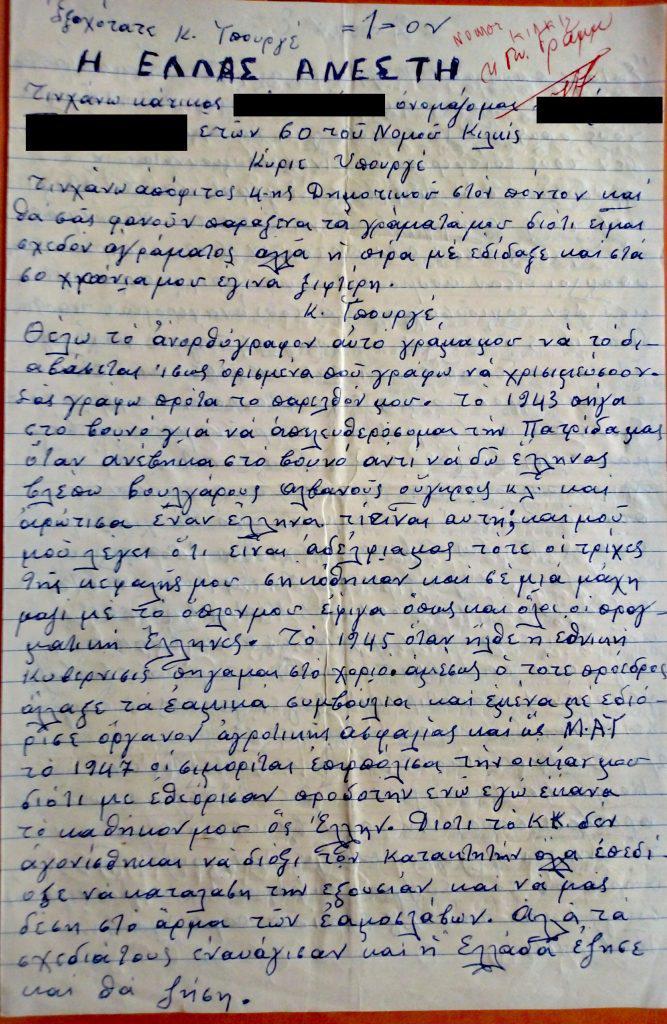 Εξοχότατε κ. Υπουργέ =1=ον
Νομος Κιλκίς
Η ΕΛΛΑΣ ΑΝΕΣΤΗ
Τινχάνω κάτικος ονομαζομαι
ετών 60 του Νομού Κιλκίς
Κύριε Υπουργέ
Τινχάνω απόφιτος 4-ης Δημοτικού στον πόντον και
θα σας φανούν παράξενα τα γράματα μου διότι είμαι
σχεδόν αγράματος αλλά η πίρα μέ εδίδαξε και στά
60 χρόνια μου έγινα ξιφτέρη.
κ. Υπουργέ
Θέλω το ανορθόγραφον αυτό γράμα μου νά το δι-
αβάσεται ίσως ορισμένα πού γράφω νά χρισιμεύσουν.
Σάς γράφω πρότα το παρελθόν μου. το 1943 πήγα
στο βουνό γιά να απελευθερόσομαι την Πατρίδα μας
όταν ανέβηκα στό βουνό αντι νά δώ έλληνας
βλέπω βουλγάρους αλβανούς ούγκρους κλ. και
αρώτισα έναν έλληνα τι είναι αυτή; και μού
μού λέγει ότι είναι αδέλφια μας τότε οι τρίχες
της κεφαλής μου σηκόθηκαν και σε μιά μάχη
μαζι με το όπλον μου έφιγα όπως και όλοι οι πραγ-
ματική Έλληνες. Το 1945 όταν ήλθε η εθνική
Κυβερνισις πήγαμαι στο χοριο. αμέσως ο τότε πρόεδρος
άλλαξε τα εαμικά συμβούλια και εμένα με εδιό-
ρισε όργανον αγροτικής ασφαλίας και ως Μ.Α.Υ
το 1947 οι σιμορίται επιρπόλισα την οικίαν μου
διότι με εθεόρισαν προδοτην ενώ εγώ έκανα
το καθήκον μου ως Έλλην. Διοτι το ΚΚ δέν
αγονίσθηκαι να διόξι τον κατακτητήν όλα επεδί-
οξε να καταλαβη την εξουσίαν και νά μας
δέση στο άρμα των εαμοσλάβων. Αλλά τα
σχεδιά τους εναυάγισαν και η Ελλάδα έζησε
και θα ζήση.